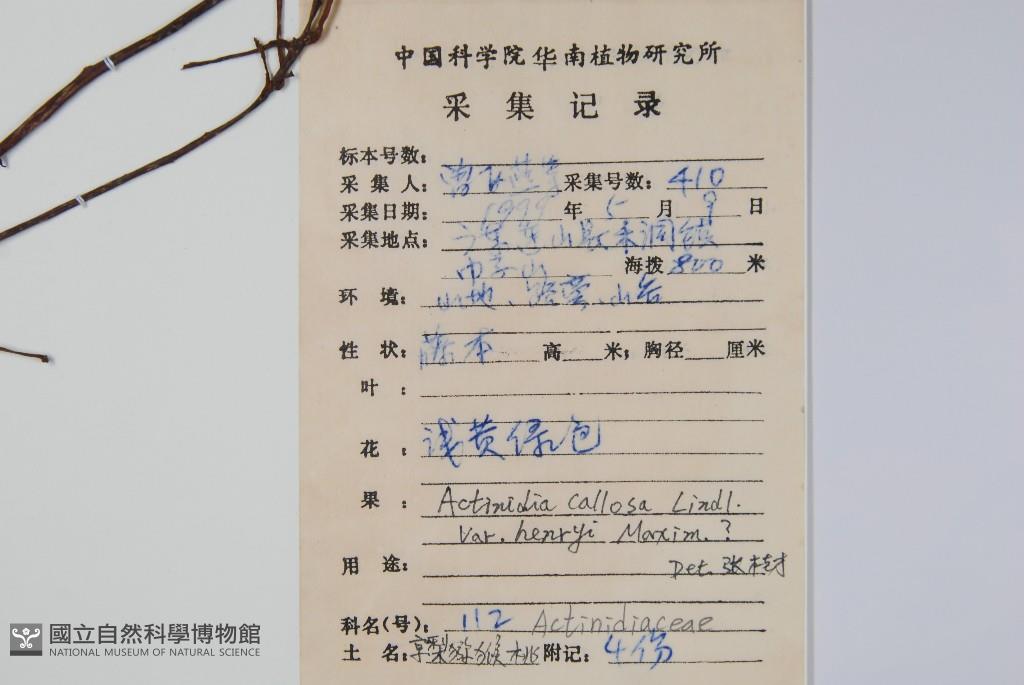 中国科学院华南植物研究所
采集记录
标本号数:
采集人: 曾飞燕等 采集号数: 410
采集日期: 1999年5月9日
采集地点: 广东连山县禾洞镇
山 海拨 800 米
环境: 山地、路旁、山谷
性状: 藤本 高 米; 胸径 厘米
叶:
花: 浅黄绿色
果: Actinidia callosa Lindl.
var. henryi Maxim.?
用途: Det. 张桂才
科名(号): 112 Actinidiaceae
土名: 京梨猕猴桃 附记: 4份
國立自然科學博物館
NATIONAL MUSEUM OF NATURAL SCIENCE